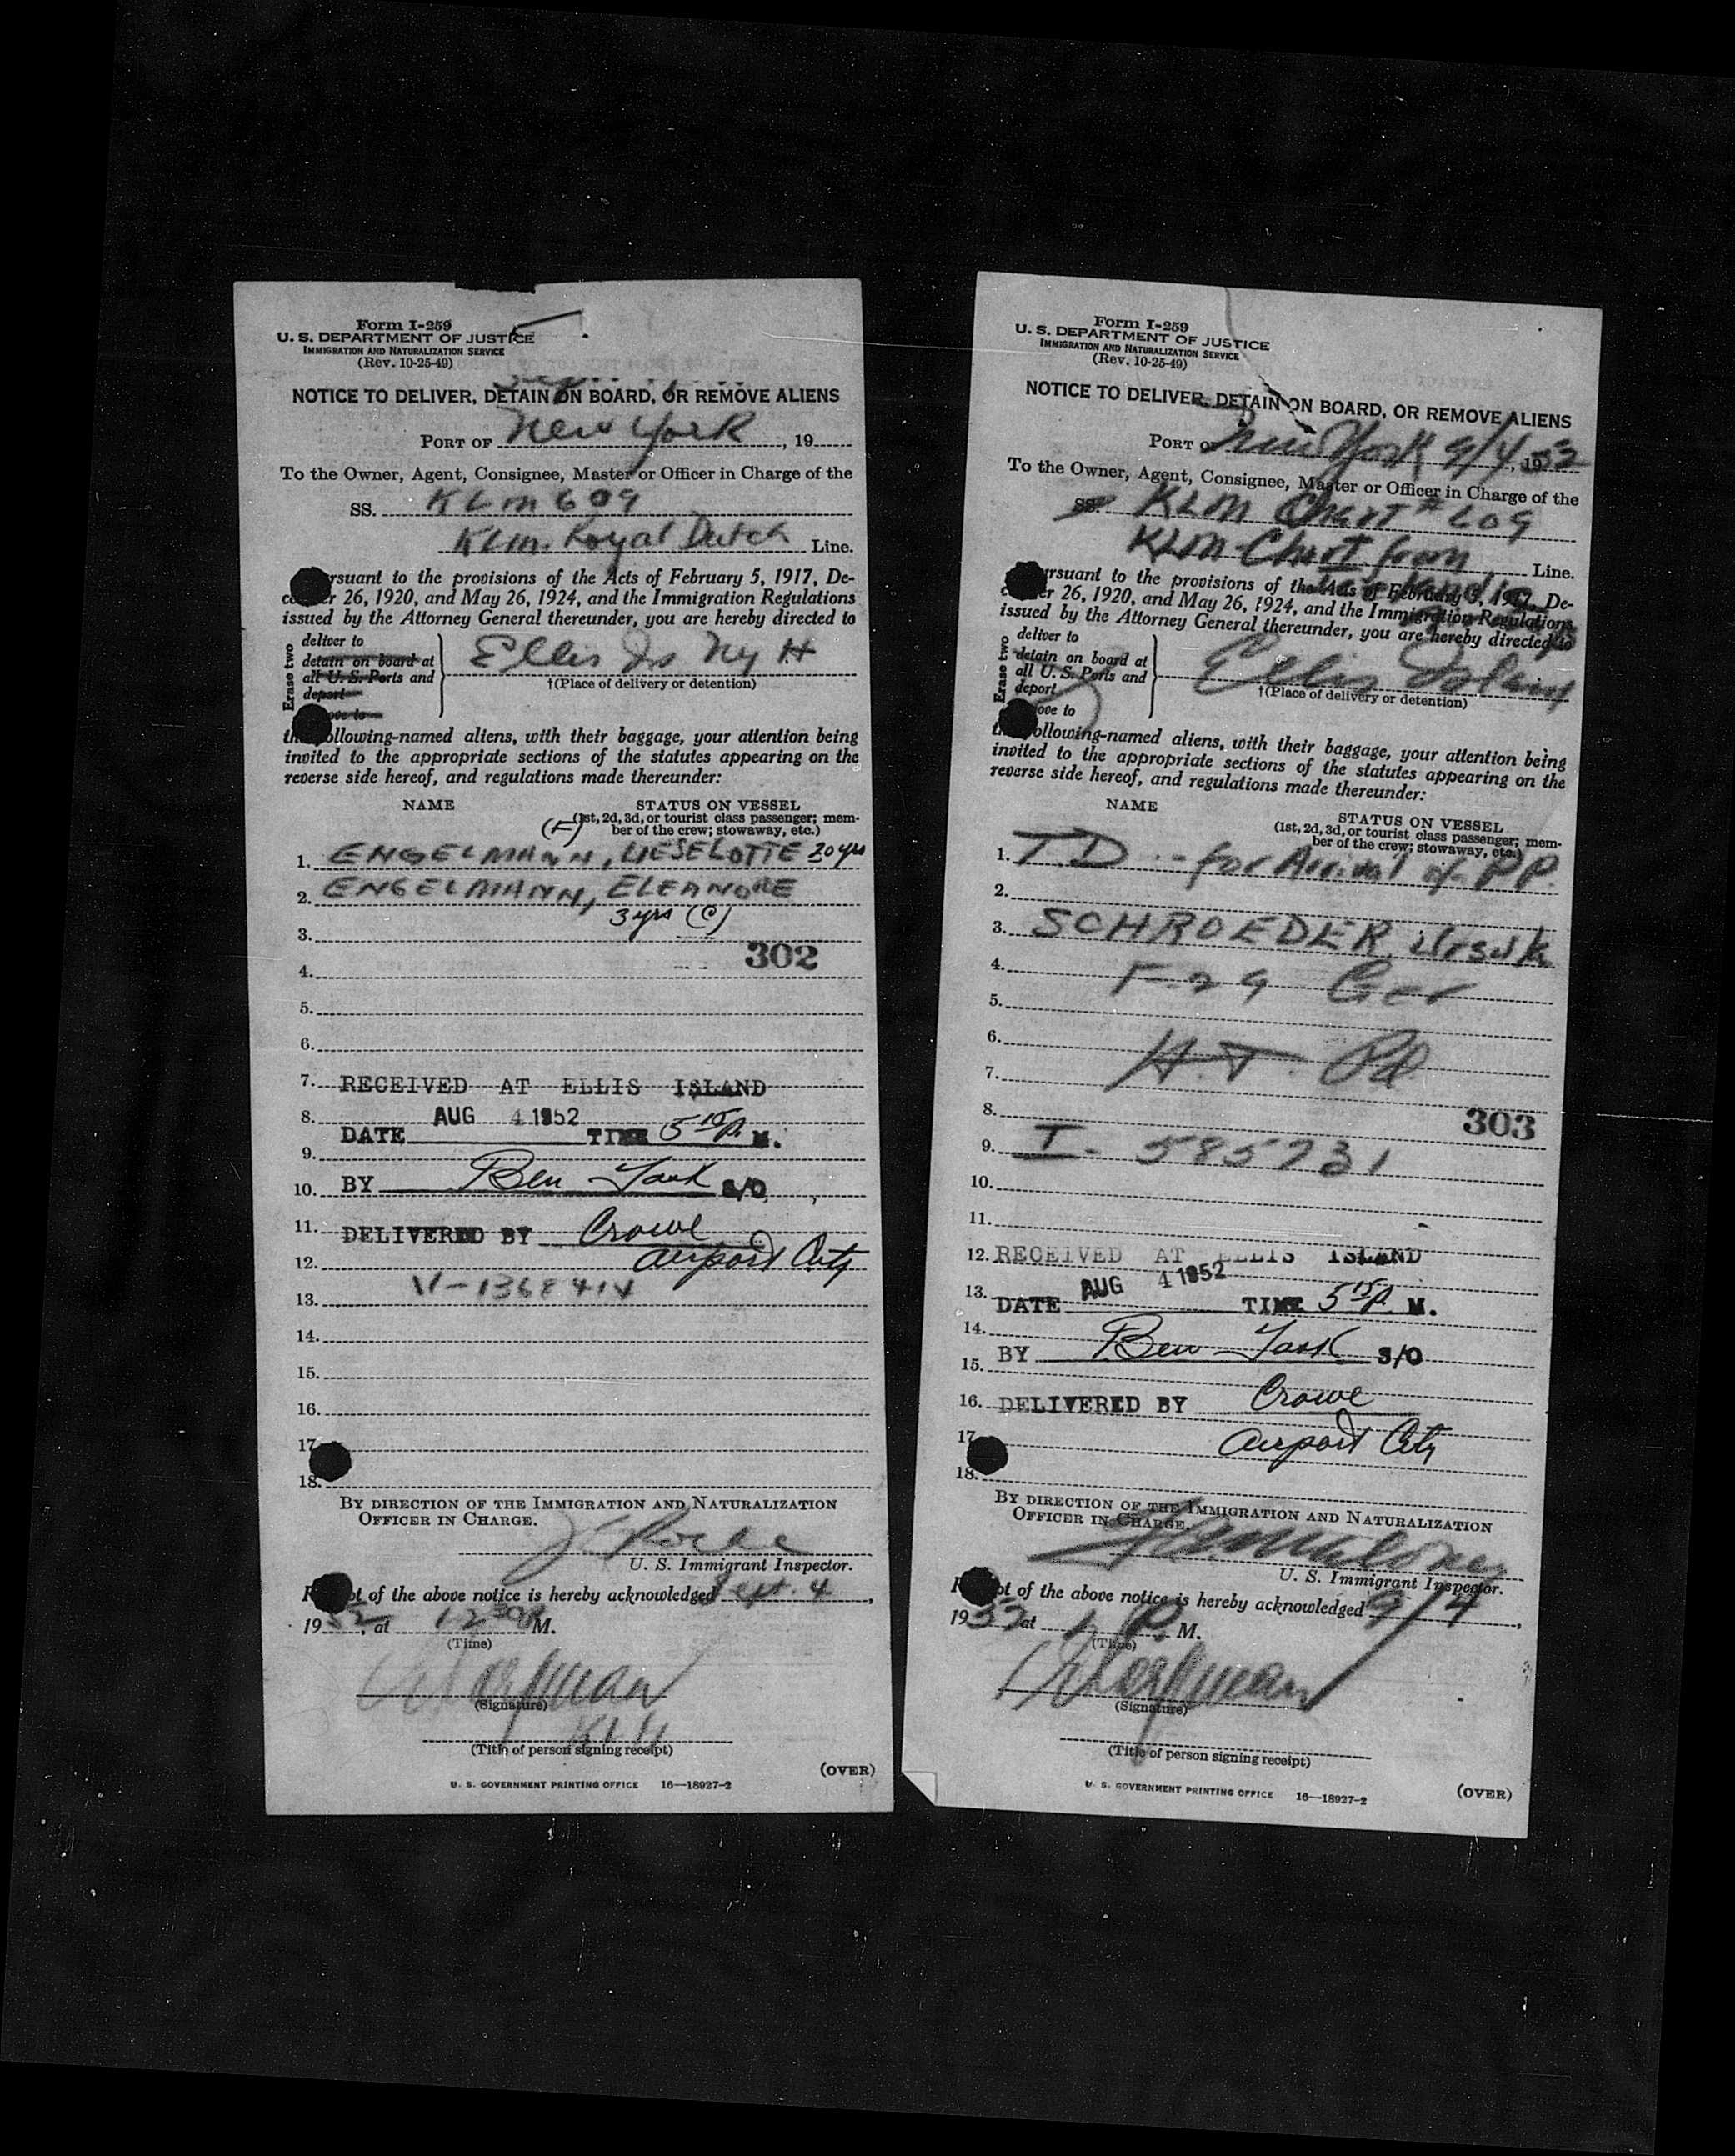 Form I-259
U. S. DEPARTMENT OF JUSTICE
IMMIGRATION AND NATURALIZATION SERVICE
(Rev. 10-25-49)
NOTICE TO DELIVER, DETAIN ON BOARD, OR REMOVE ALIENS
PORT OF New York, 19
To the Owner, Agent, Consignee, Master or Officer in Charge of the
SS. KLM 609
KLM. Royal Dutch Line.
rsuant to the provisions of the Acts of February 5, 1917, De-
ce er 26, 1920, and May 26, 1924, and the Immigration Regulations
issued by the Attorney General thereunder, you are hereby directed to
Erase two
deliver to
detain on board at
all U. S. Ports and
deport
ove to
Ellis Is NY H
†(Place of delivery or detention)
th ollowing-named aliens, with their baggage, your attention being
invited to the appropriate sections of the statutes appearing on the
reverse side hereof, and regulations made thereunder:
NAME STATUS ON VESSEL
(1st, 2d, 3d, or tourist class passenger; mem-
(F) ber of the crew; stowaway, etc.)
1. ENGELMANN, LIESELOTTE 20 yrs
2. ENGELMANN, ELEANORE
3 yrs (C)
3.
302
4.
5.
6.
7. RECEIVED AT ELLIS ISLAND
8. AUG 4 1952
DATE TIME 5 15 P. M.
9.
10. BY Ben S/O
11. DELIVERED BY Crowe
12. Airport City
V-1368414
13.
14.
15.
16.
17.
18.
BY DIRECTION OF THE IMMIGRATION AND NATURALIZATION
OFFICER IN CHARGE.
U. S. Immigrant Inspector.
R pt of the above notice is hereby acknowledged Sept. 4,
1952, at 12 30 P M.
(Time)
(Signature)
KLM
(Title of person signing receipt)
(OVER)
U. S. GOVERNMENT PRINTING OFFICE 16—18927-2
Form I-259
U. S. DEPARTMENT OF JUSTICE
IMMIGRATION AND NATURALIZATION SERVICE
(Rev. 10-25-49)
NOTICE TO DELIVER, DETAIN ON BOARD, OR REMOVE ALIENS
PORT OF New York 9/4, 1952
To the Owner, Agent, Consignee, Master or Officer in Charge of the
SS. KLM Chart # 609
KLM-Chart from Line.
ursuant to the provisions of the Acts of February 5, 1917, De-
ce er 26, 1920, and May 26, 1924, and the Immigration Regulations
issued by the Attorney General thereunder, you are hereby directed to
Erase two
deliver to
detain on board at
all U. S. Ports and
deport
ove to
Ellis Island
†(Place of delivery or detention)
th ollowing-named aliens, with their baggage, your attention being
invited to the appropriate sections of the statutes appearing on the
reverse side hereof, and regulations made thereunder:
NAME STATUS ON VESSEL
(1st, 2d, 3d, or tourist class passenger; mem-
ber of the crew; stowaway, etc.)
1. T.D. - for Arrival of PP.
2.
3. SCHROEDER, Ursula
4. F-29 Ger
5.
6.
H.T. Pd.
7.
8. 303
9. I- 585731
10.
11.
12. RECEIVED AT ELLIS ISLAND
13. AUG 4 1952
DATE TIME 5 15 P. M.
14.
BY Ben S/O
15.
16. DELIVERED BY Crowe
17. Airport City
18.
BY DIRECTION OF THE IMMIGRATION AND NATURALIZATION
OFFICER IN CHARGE.
U. S. Immigrant Inspector.
R pt of the above notice is hereby acknowledged 9/4,
1952 at 1 P. M.
(Time)
(Signature)
(Title of person signing receipt)
(OVER)
U. S. GOVERNMENT PRINTING OFFICE 16—18927-2